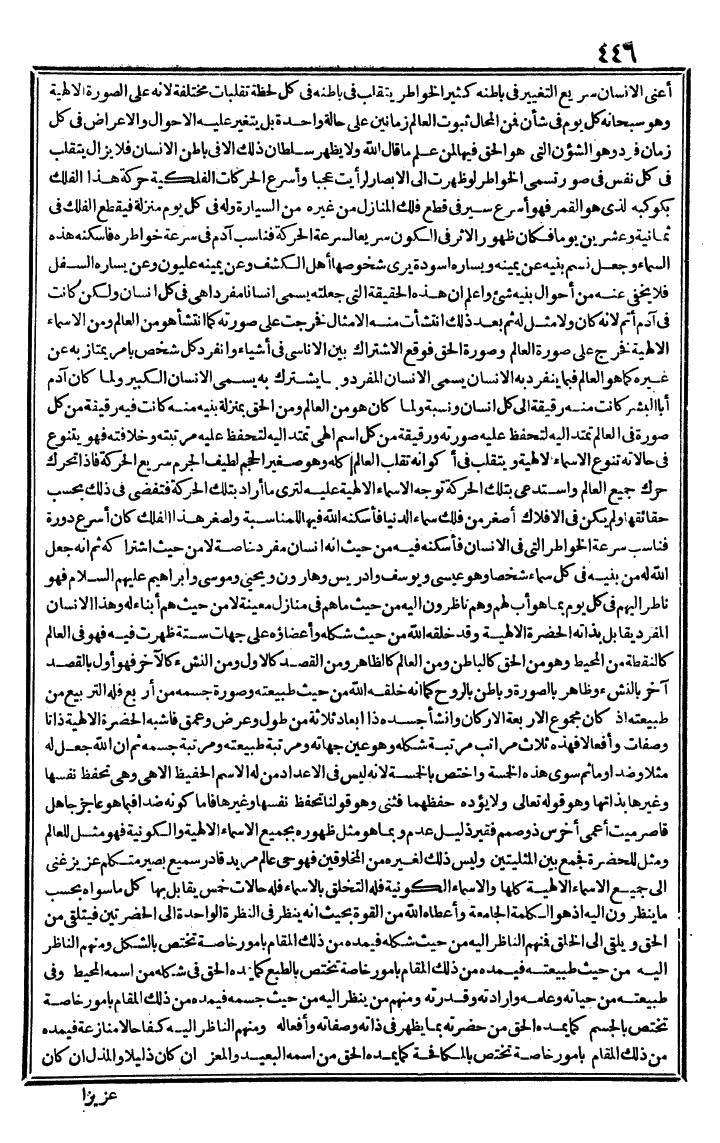 ٤٤٦
أعنى الانسان سريع التغيير فى باطنه كثير الخواطر يتقلب فى باطنه فى كل لحظة تقلبات مختلفة لانه على الصورة الالهية
وهو سبحانه كل يوم فى شأن فمن المحال ثبوت العالم زمانين على حالة واحدة بل يتغير عليه الاحوال والاعراض فى كل
زمان فرد وهو الشؤن التى هو الحق فيها لمن علم ما قال الله ولا يظهر سلطان ذلك الا فى باطن الانسان فلا يزال يتقلب
فى كل نفس فى صور تسمى الخواطر لو ظهرت الى الابصار لرأيت عجبا وأسرع الحركات الفلكية حركة هذا الفلك
بكوكبه لذى هو القمر فهو أسرع سير فى قطع فلك المنازل من غيره من السيارة وله فى كل يوم منزلة فيقطع الفلك فى
ثمانية وعشرين يوما فكان ظهور الاثر فى الكون سريعا لسرعة الحركة فناسب آدم فى سرعة خواطره فاسكنه هذه
السماء وجعل نسم بنيه عن يمينه ويساره اسودة يرى شخوصها أهل الكشف وعن يمينه عليون وعن يساره السفل
فلا يخفى عنه من أحوال بنيه شئ واعلم ان هذه الحقيقة التى جعلته يسمى انسانا مفردا هى فى كل انسان ولكن كانت
فى آدم أتم لانه كان ولا مثل له ثم بعد ذلك انتشأت منه الامثال فخرجت على صورته كما انتشأ هو من العالم ومن الاسماء
الالهية فخرج على صورة العالم وصورة الحق فوقع الاشتراك بين الاناسى فى أشياء وانفرد كل شخص بامر يمتاز به عن
غيره كما هو العالم فبما ينفرد به الانسان يسمى الانسان المفرد وبما يشترك به يسمى الانسان الكبير ولما كان آدم
أبا البشر كانت منه رقيقة الى كل انسان ونسبة ولما كان هو من العالم ومن الحق بمنزلة بنيه منه كانت فيه رقيقة من كل
صورة فى العالم تمتد اليه لتحفظ عليه صورته ورقيقة من كل اسم الهى تمتد اليه لتحفظ عليه مرتبته وخلافته فهو يتنوع
فى حالاته تنوع الاسماء الالهية ويتقلب فى أكوانه تقلب العالم كله وهو صغير الحجم لطيف الجرم سريع الحركة فاذا تحرك
حرك جميع العالم واستدعى بتلك الحركة توجه الاسماء الالهية عليه لترى ما أراد بتلك الحركة فتقضى فى ذلك بحسب
حقائقها ولم يكن فى الافلاك أصغر من فلك سماء الدنيا فأسكنه الله فيها للمناسبة ولصغر هذا الفلك كان أسرع دورة
فناسب سرعة الخواطر التى فى الانسان فأسكنه فيه من حيث انه انسان مفرد خاصة لا من حيث اشترا كه ثم انه جعل
الله له من بنيه فى كل سماء شخصا وهو عيسى ويوسف وادريس وهارون ويحيى وموسى وابراهيم عليهم السلام فهو
ناظر اليهم فى كل يوم بما هو أب لهم وهم ناظرون اليه من حيث ما هم فى منازل معينة لا من حيث هم أبناء له وهذا الانسان
المفرد يقابل بذاته الحضرة الالهية وقد خلقه الله من حيث شكله وأعضاؤه على جهات ستة ظهرت فيه فهو فى العالم
كالنقطة من المحيط وهو من الحق كالباطن ومن العالم كالظاهر ومن القصد كالاول ومن النشء كالآخر فهو أول بالقصد
آخر بالنشء وظاهر بالصورة وباطن بالروح كما انه خلقه الله من حيث طبيعته وصورة جسمه من أربع فله التربيع من
طبيعته اذ كان مجموع الاربعة الاركان وانشأ جسده ذا ابعاد ثلاثة من طول وعرض وعمق فاشبه الحضرة الالهية ذاتا
وصفات وأفعالا فهذه ثلاث مراتب مرتبة شكله وهو عين جهاته ومرتبة طبيعته ومرتبة جسمه ثم ان الله جعل له
مثلا وضدا وما ثم سوى هذه الخسة واختص بالخسة لانه ليس فى الاعداد من له الاسم الحفيظ الا هى وهى تحفظ نفسها
وغيرها بذاتها وهو قوله تعالى ولا يؤده حفظهما فثنى وهو قولنا تحفظ نفسها وغيرها فاما كونه ضدا فبما هو عاجز جاهل
قاصر ميت أعمى أخرس ذو صمم فقير ذليل عدم وبما هو مثل ظهوره بجميع الاسماء الالهية والكونية فهو مثل للعالم
ومثل للحضرة فجمع بين المثليتين وليس ذلك لغيره من المخلوقين فهو حى عالم مريد قادر سميع بصير متكلم عزيز غنى
الى جميع الاسماء الالهية كلها والاسماء الكونية فله التخلق بالاسماء فله حالات خمس يقابل بها كل ماسواه بحسب
ما ينظرون اليه اذ هو الكلمة الجامعة وأعطاه الله من القوة بحيث انه ينظر فى النظرة الواحدة الى الحضرتين فيتلقى من
الحق ويلقى الى الخلق فنهم الناظر اليه من حيث شكله فيمده من ذلك المقام بامور خاصة تختص بالشكل ومنهم الناظر
اليه من حيث طبيعته فيمده من ذلك المقام بامور خاصة تختص بالطبع كما يمده الحق فى شكله من اسمه المحيط وفى
طبيعته من حياته وعلمه وارادته وقدرته ومنهم من ينظر اليه من حيث جسمه فيمده من ذلك المقام بامور خاصة
تختص بالجسم كما يمده الحق من حضرته بما يظهر فى ذاته وصفاته وأفعاله ومنهم الناظر اليه كفاحا لا منازعة فيمده
من ذلك المقام بامور خاصة تختص بالمكافحة كما يمده الحق من اسمه البعيد والمعز ان كان ذليلا والمذل ان كان
عزيزا